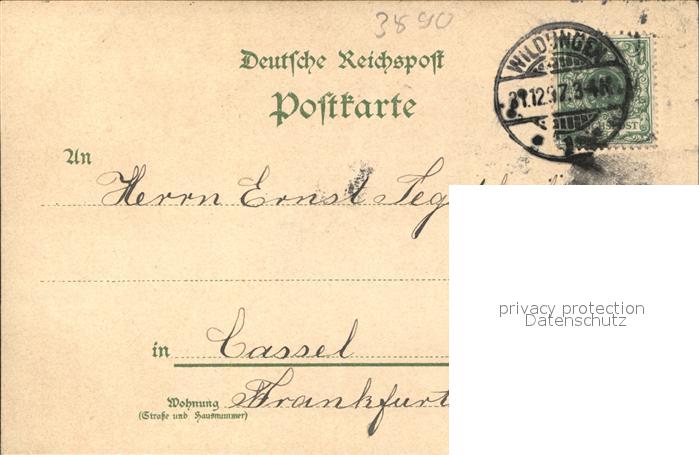 3890
Deutsche Reichspost
Postkarte
WILDUNGEN
31.12.97.3-4N.
An
Herrn Ernst
in Cassel
Wohnung Frankfurt
(Straße und Hausnummer)
privacy protection
Datenschutz